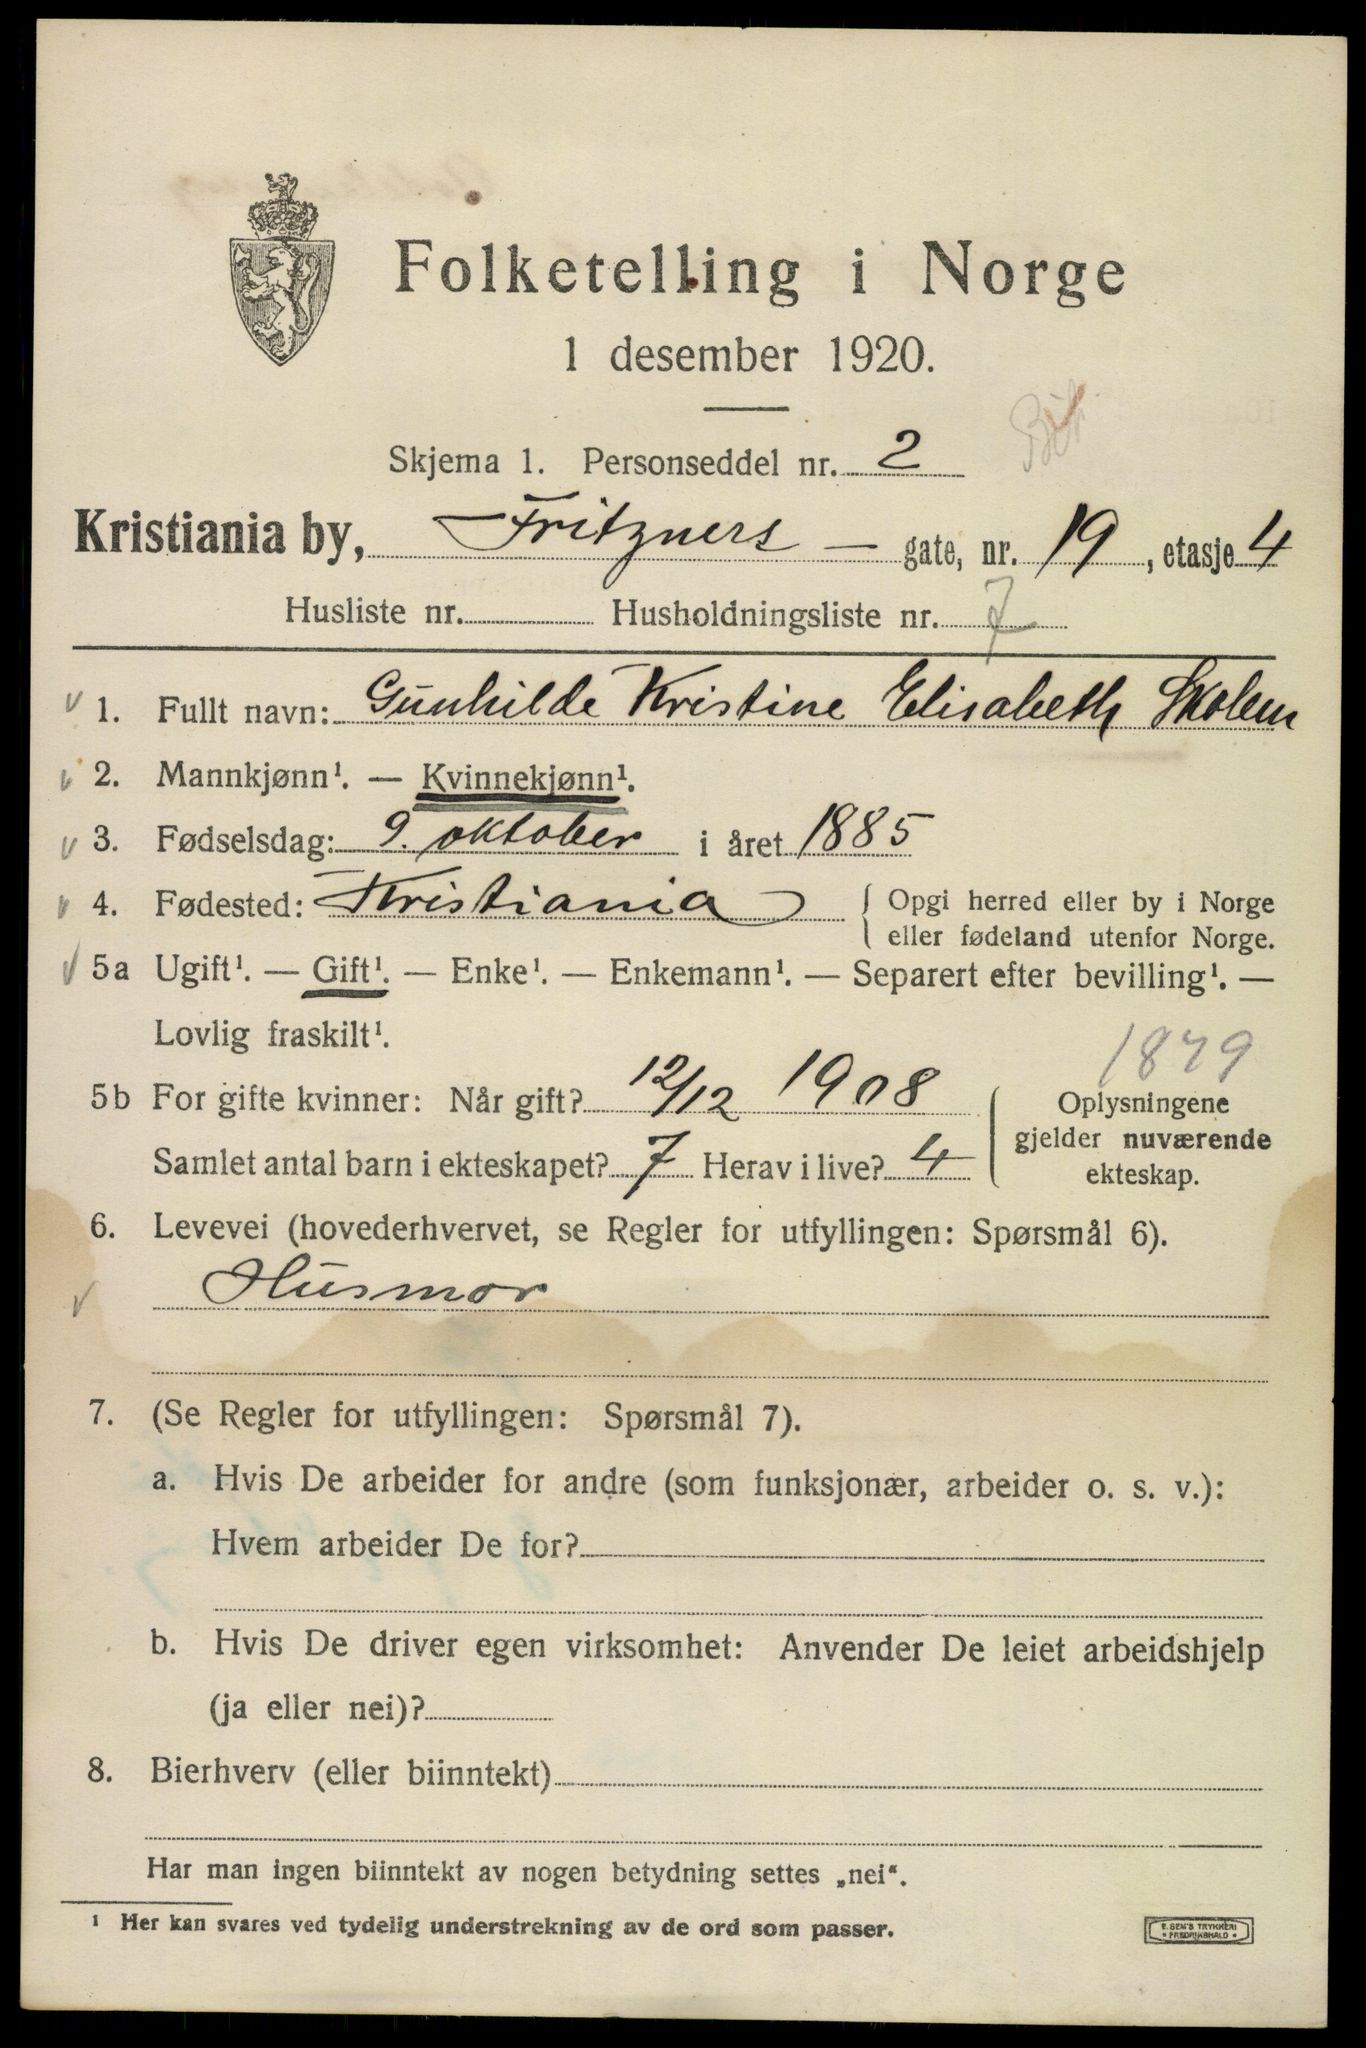 Folketelling i Norge
1 desember 1920.
Skjema 1. Personseddel nr. 2
Kristiania by, Fritzners — gate, nr. 19, etasje 4
Husliste nr. Husholdningsliste nr. 7
1. Fullt navn: Gunhilde Kristine Elisabeth Skolem
2. Mannkjønn¹. — Kvinnekjønn¹.
3. Fødselsdag: 9. oktober i året 1885
4. Fødested: Kristiania { Opgi herred eller by i Norge
eller fødeland utenfor Norge.
5a Ugift¹. — Gift¹. — Enke¹. — Enkemann¹. — Separert efter bevilling¹. —
Lovlig fraskilt¹.
1879
5b For gifte kvinner: Når gift? 12/12 1908
Samlet antal barn i ekteskapet? 7 Herav i live? 4
Oplysningene
gjelder nuværende
ekteskap.
6. Levevei (hovederhvervet, se Regler for utfyllingen: Spørsmål 6).
Husmor
7. (Se Regler for utfyllingen: Spørsmål 7).
a. Hvis De arbeider for andre (som funksjonær, arbeider o. s. v.):
Hvem arbeider De for?
b. Hvis De driver egen virksomhet: Anvender De leiet arbeidshjelp
(ja eller nei)?
8. Bierhverv (eller biinntekt)
Har man ingen biinntekt av nogen betydning settes „nei“.
¹ Her kan svares ved tydelig understrekning av de ord som passer.
E. SEM'S TRYKKERI
* FREDRIKSHALD *